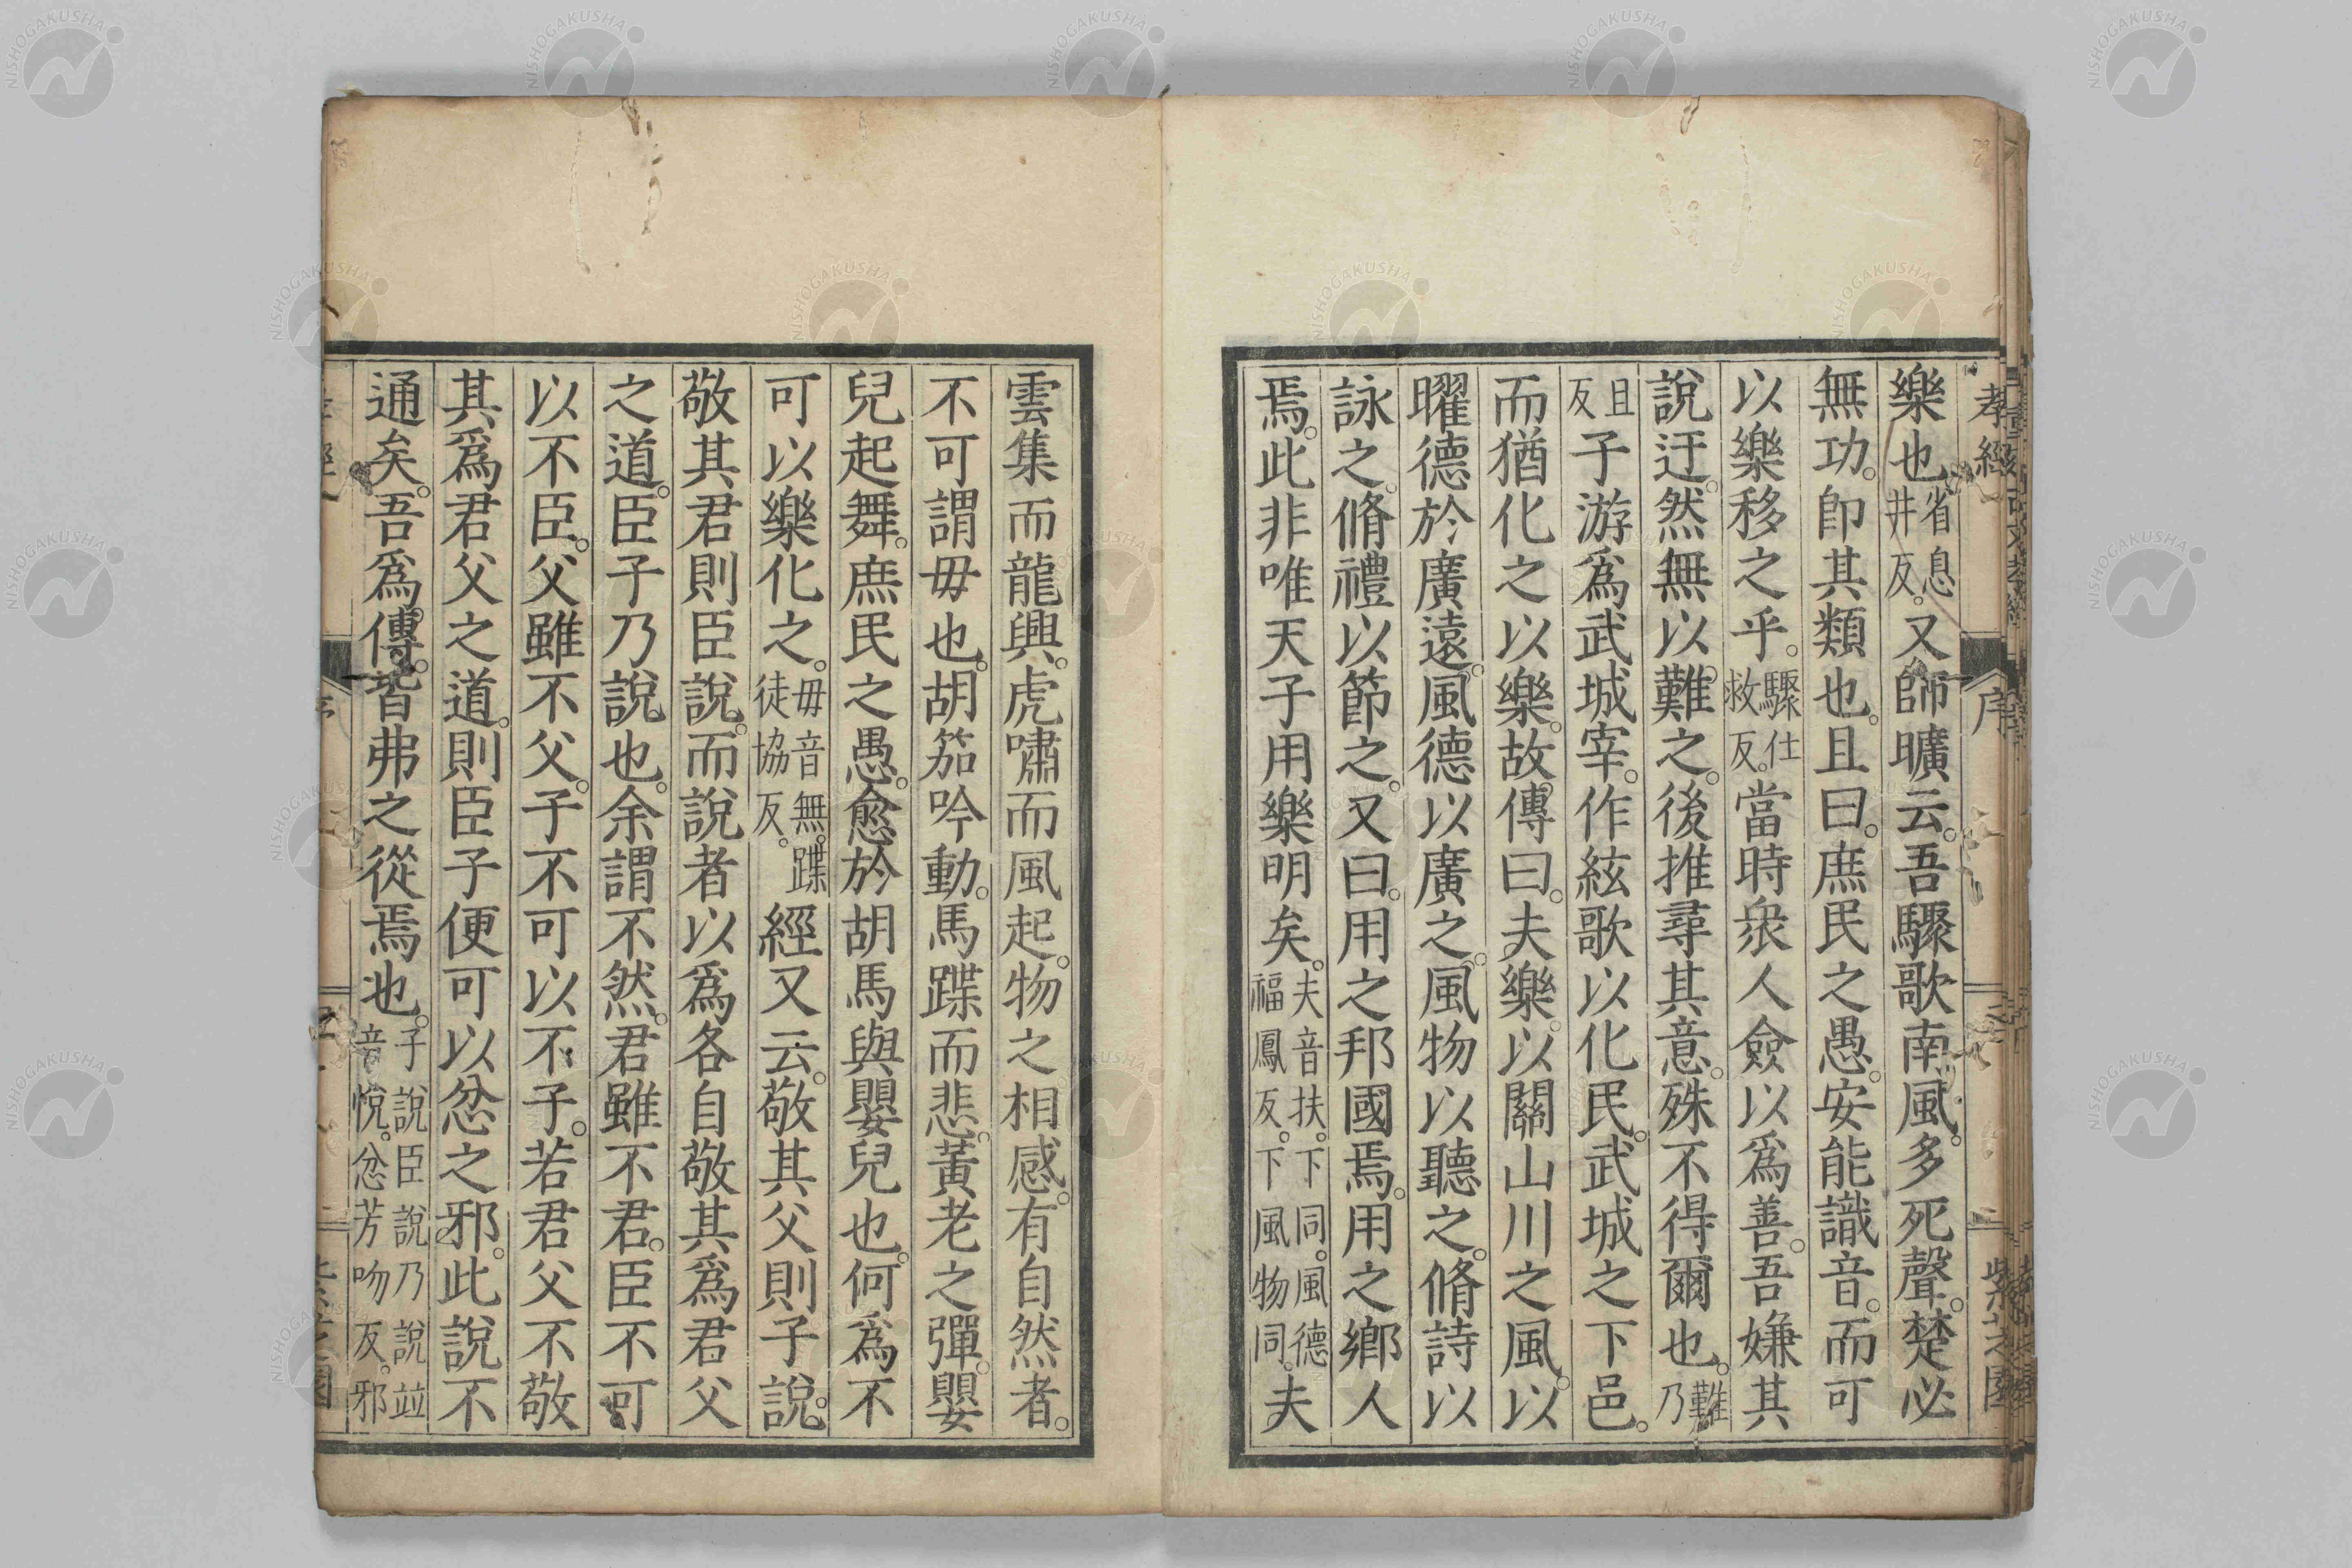 孝經
序
紫芝園
樂也。省息井反。又師曠云。吾驟歌南風。多死聲。楚必
無功。卽其類也。且曰。庶民之愚。安能識音。而可
以樂移之乎。驟仕救反。當時衆人僉以爲善。吾嫌其
說迂。然無以難之。後推尋其意。殊不得爾也。難乃
且反子游爲武城宰。作絃歌以化民。武城之下邑。
而猶化之以樂。故傳曰。夫樂。以關山川之風。以
曜德於廣遠。風德以廣之。風物以聽之。脩詩以
詠之。脩禮以節之。又曰。用之邦國焉。用之鄕人
焉。此非唯天子用樂明矣。夫音扶。下同。風德福鳳反。下風物同。夫
雲集而龍興。虎嘯而風起。物之相感。有自然者。
不可謂毋也。胡笳吟動。馬蹀而悲。黃老之彈。嬰
兒起舞。庶民之愚。愈於胡馬與嬰兒也。何爲不
可以樂化之。毋音無。蹀徒協反。經又云。敬其父則子說。
敬其君則臣說。而說者以爲各自敬其爲君父
之道。臣子乃說也。余謂不然。君雖不君。臣不可
以不臣。父雖不父。子不可以不子。若君父不敬
其爲君父之道。則臣子便可以忿之邪。此說不
通矣。吾爲傳。皆弗之從焉也。子說臣說乃說竝音悅。忿芳吻反。邪
NISHOGAKUSHA